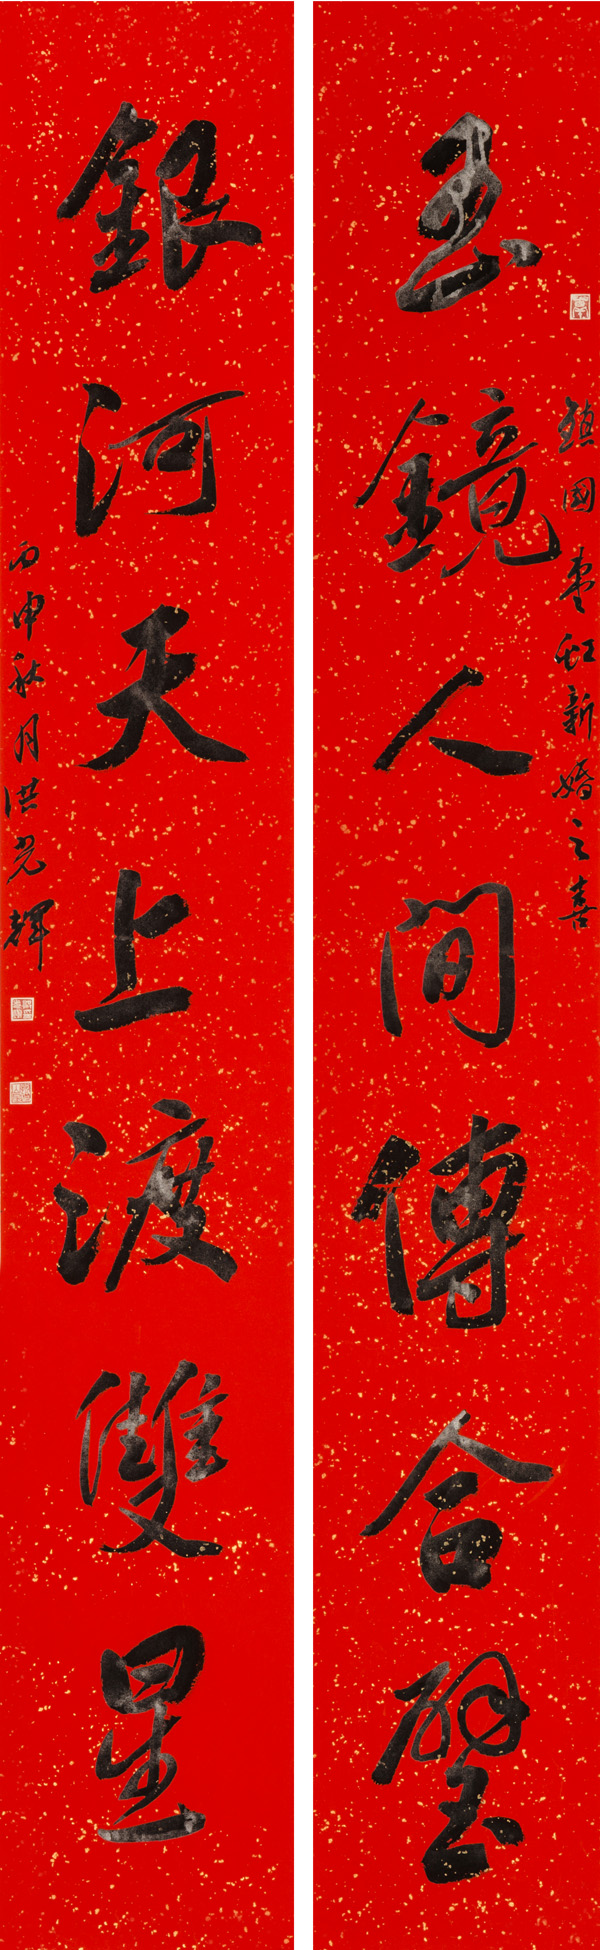 玉鏡人間傳合璧
鎮國 棗虹新婚之喜
銀河天上渡雙星
丙申秋月洪光輝